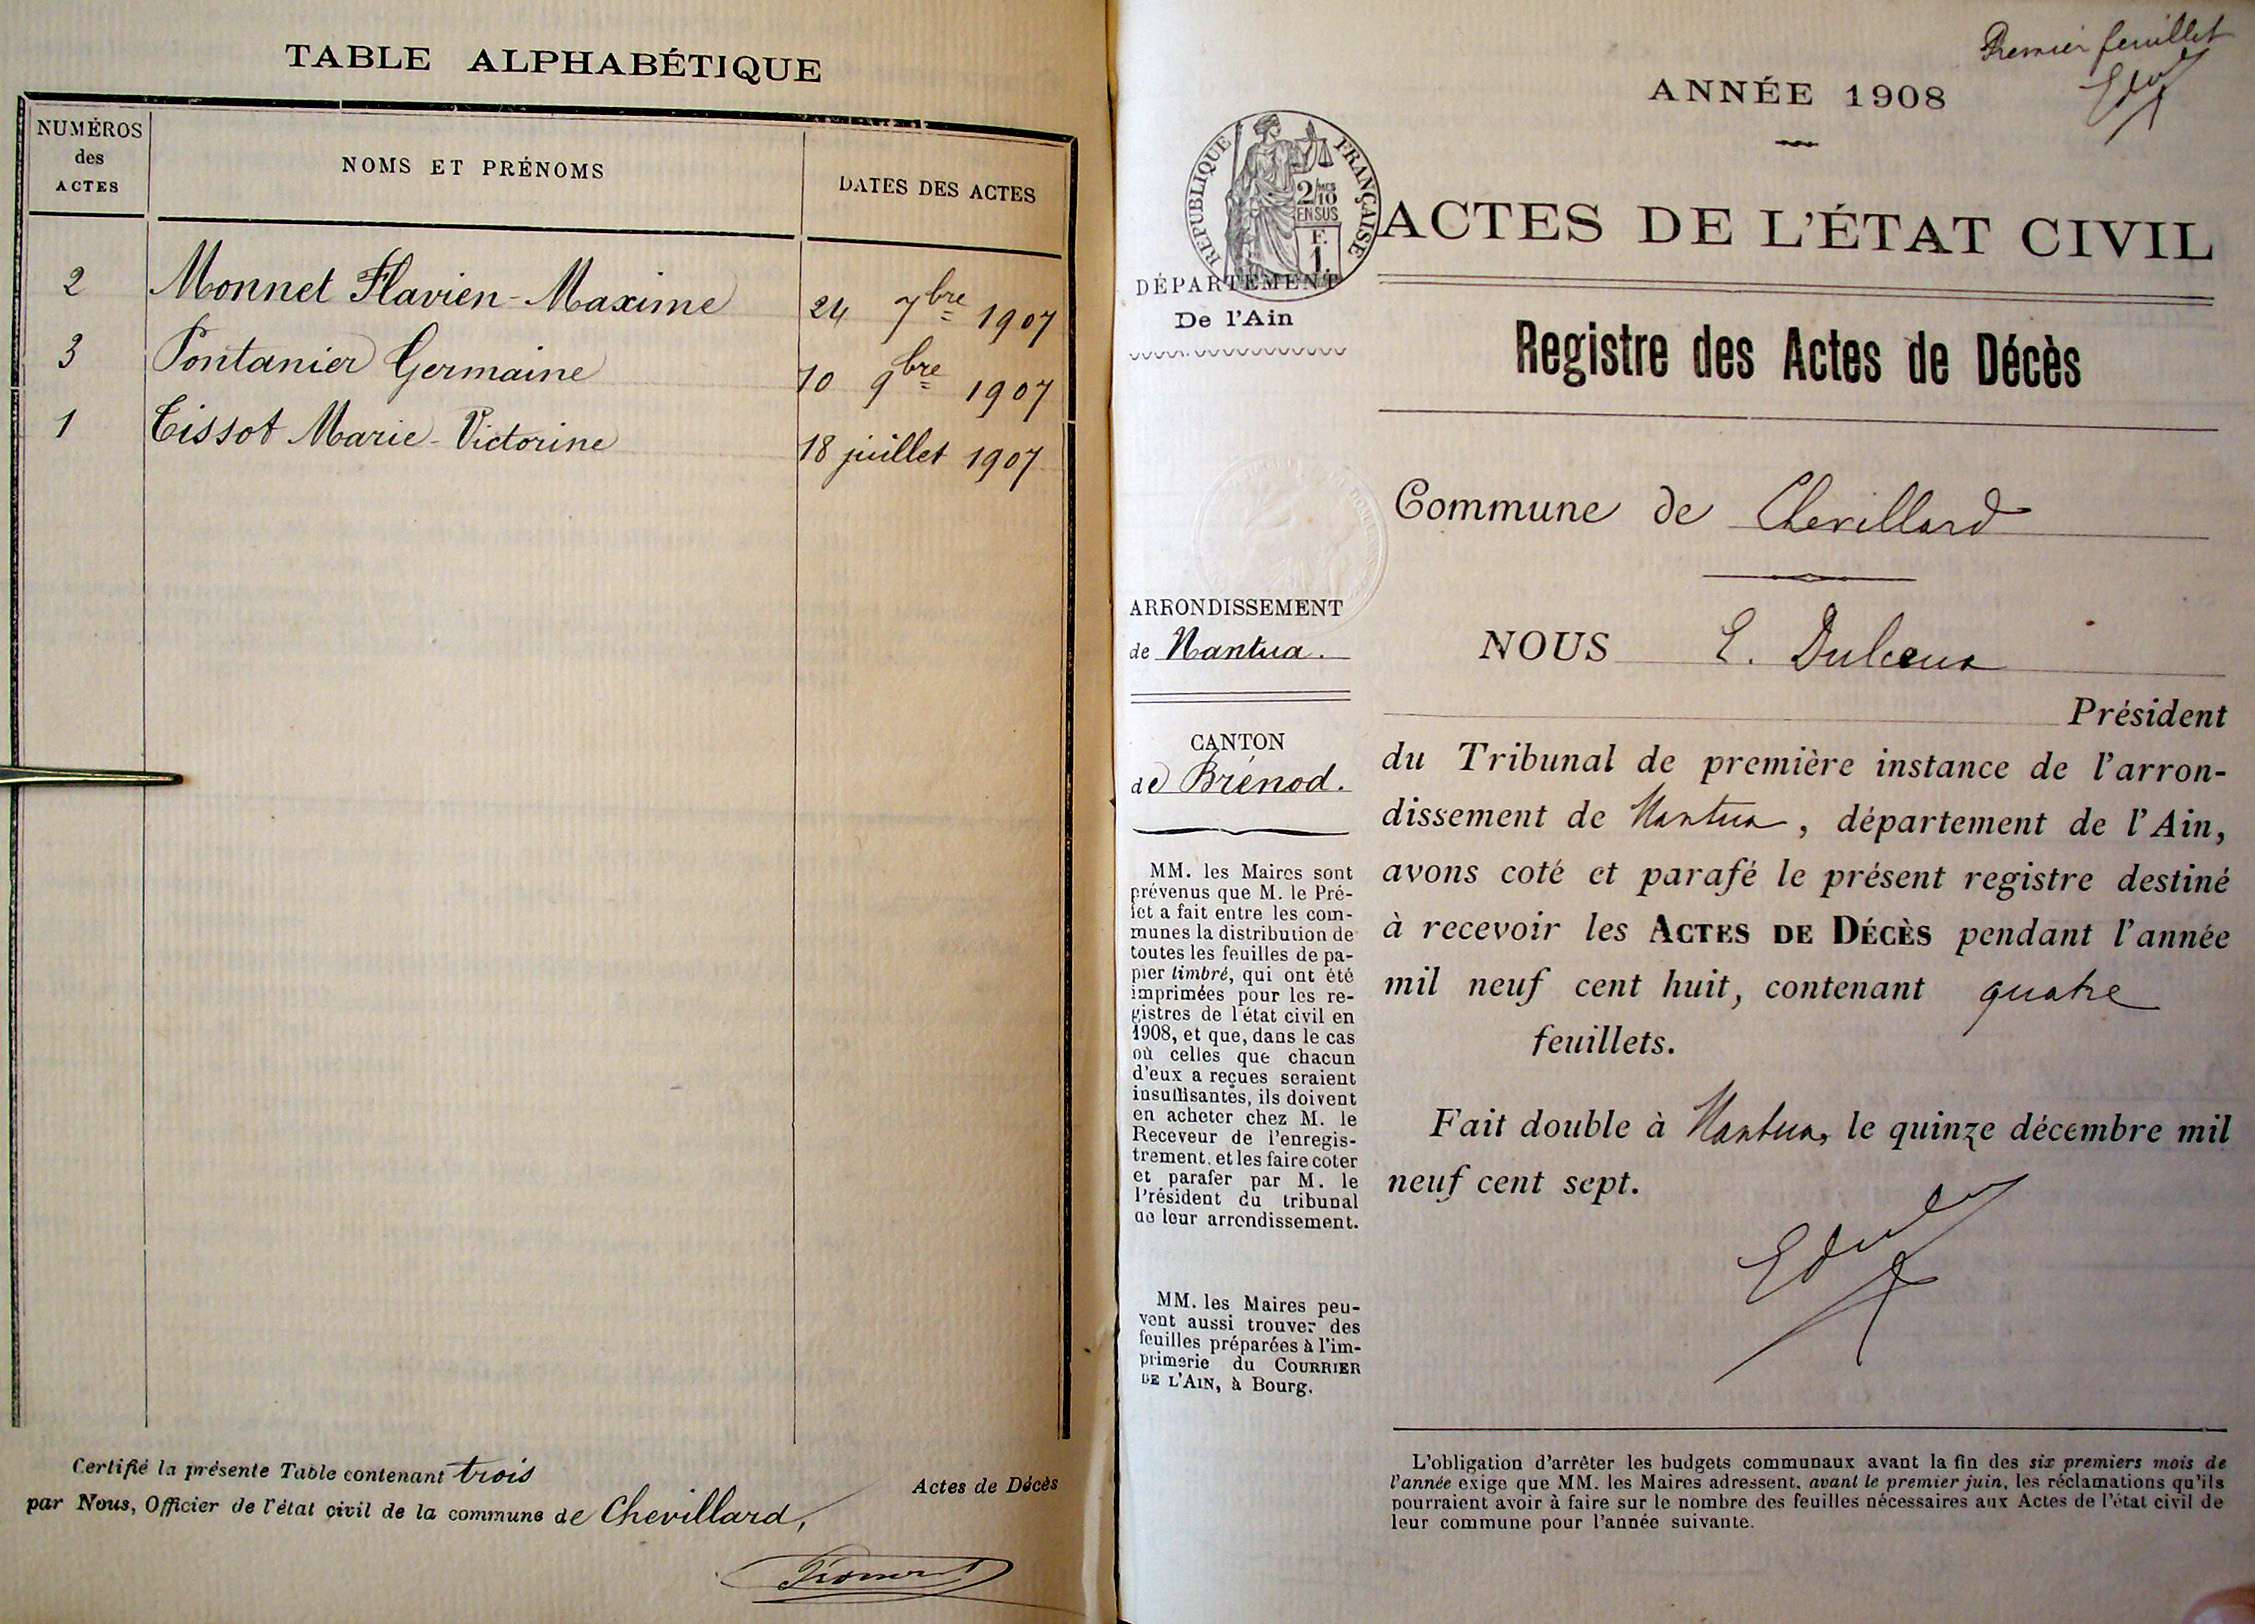 TABLE ALPHABÉTIQUE
NUMÉROS
des
ACTES
NOMS ET PRÉNOMS
DATES DES ACTES
2 Monnet Flavien-Maxime 24 7bre 1907
3 Pontanier Germaine 10 9bre 1907
1 Tissot Marie-Victorine 18 juillet 1907
Certifié la présente Table contenant trois Actes de Décès
par Nous, Officier de l'état civil de la commune de Chevillard,
Premier feuillet
ANNÉE 1908
RÉPUBLIQUE FRANÇAISE
2/10 MES
EN SUS
F.
1.
ACTES DE L'ÉTAT CIVIL
DÉPARTEMENT
De l'Ain
Registre des Actes de Décès
Commune de Chevillard
ARRONDISSEMENT
de Nantua.
NOUS E.
Président
CANTON
de Brénod.
du Tribunal de première instance de l'arron-
dissement de Nantua, département de l'Ain,
avons coté et parafé le présent registre destiné
à recevoir les ACTES DE DÉCÈS pendant l'année
mil neuf cent huit, contenant quatre
feuillets.
Fait double à Nantua, le quinze décembre mil
neuf cent sept.
MM. les Maires sont
prévenus que M. le Pré-
fet a fait entre les com-
munes la distribution de
toutes les feuilles de pa-
pier timbré, qui ont été
imprimées pour les re-
gistres de l'état civil en
1908, et que, dans le cas
où celles que chacun
d'eux a reçues seraient
insuffisantes, ils doivent
en acheter chez M. le
Receveur de l'enregis-
trement, et les faire coter
et parafer par M. le
Président du tribunal
de leur arrondissement.
MM. les Maires peu-
vent aussi trouver des
feuilles préparées à l'im-
primerie du COURRIER
DE L'AIN, à Bourg.
L'obligation d'arrêter les budgets communaux avant la fin des six premiers mois de
l'année exige que MM. les Maires adressent, avant le premier juin, les réclamations qu'ils
pourraient avoir à faire sur le nombre des feuilles nécessaires aux Actes de l'état civil de
leur commune pour l'année suivante.